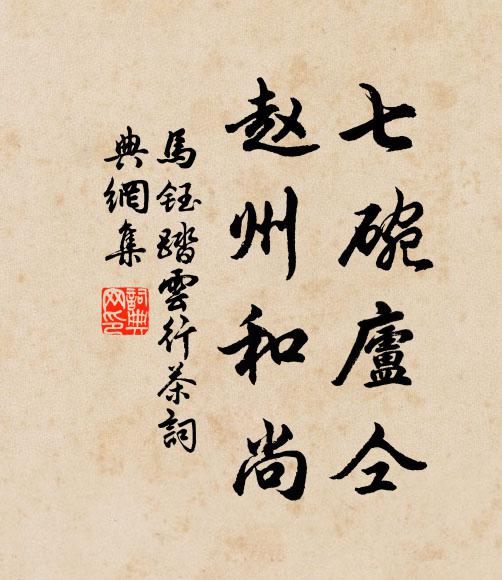 七碗廬仝
赵州和尚
馬鈺踏雲行茶詞
典網集
詞典网印